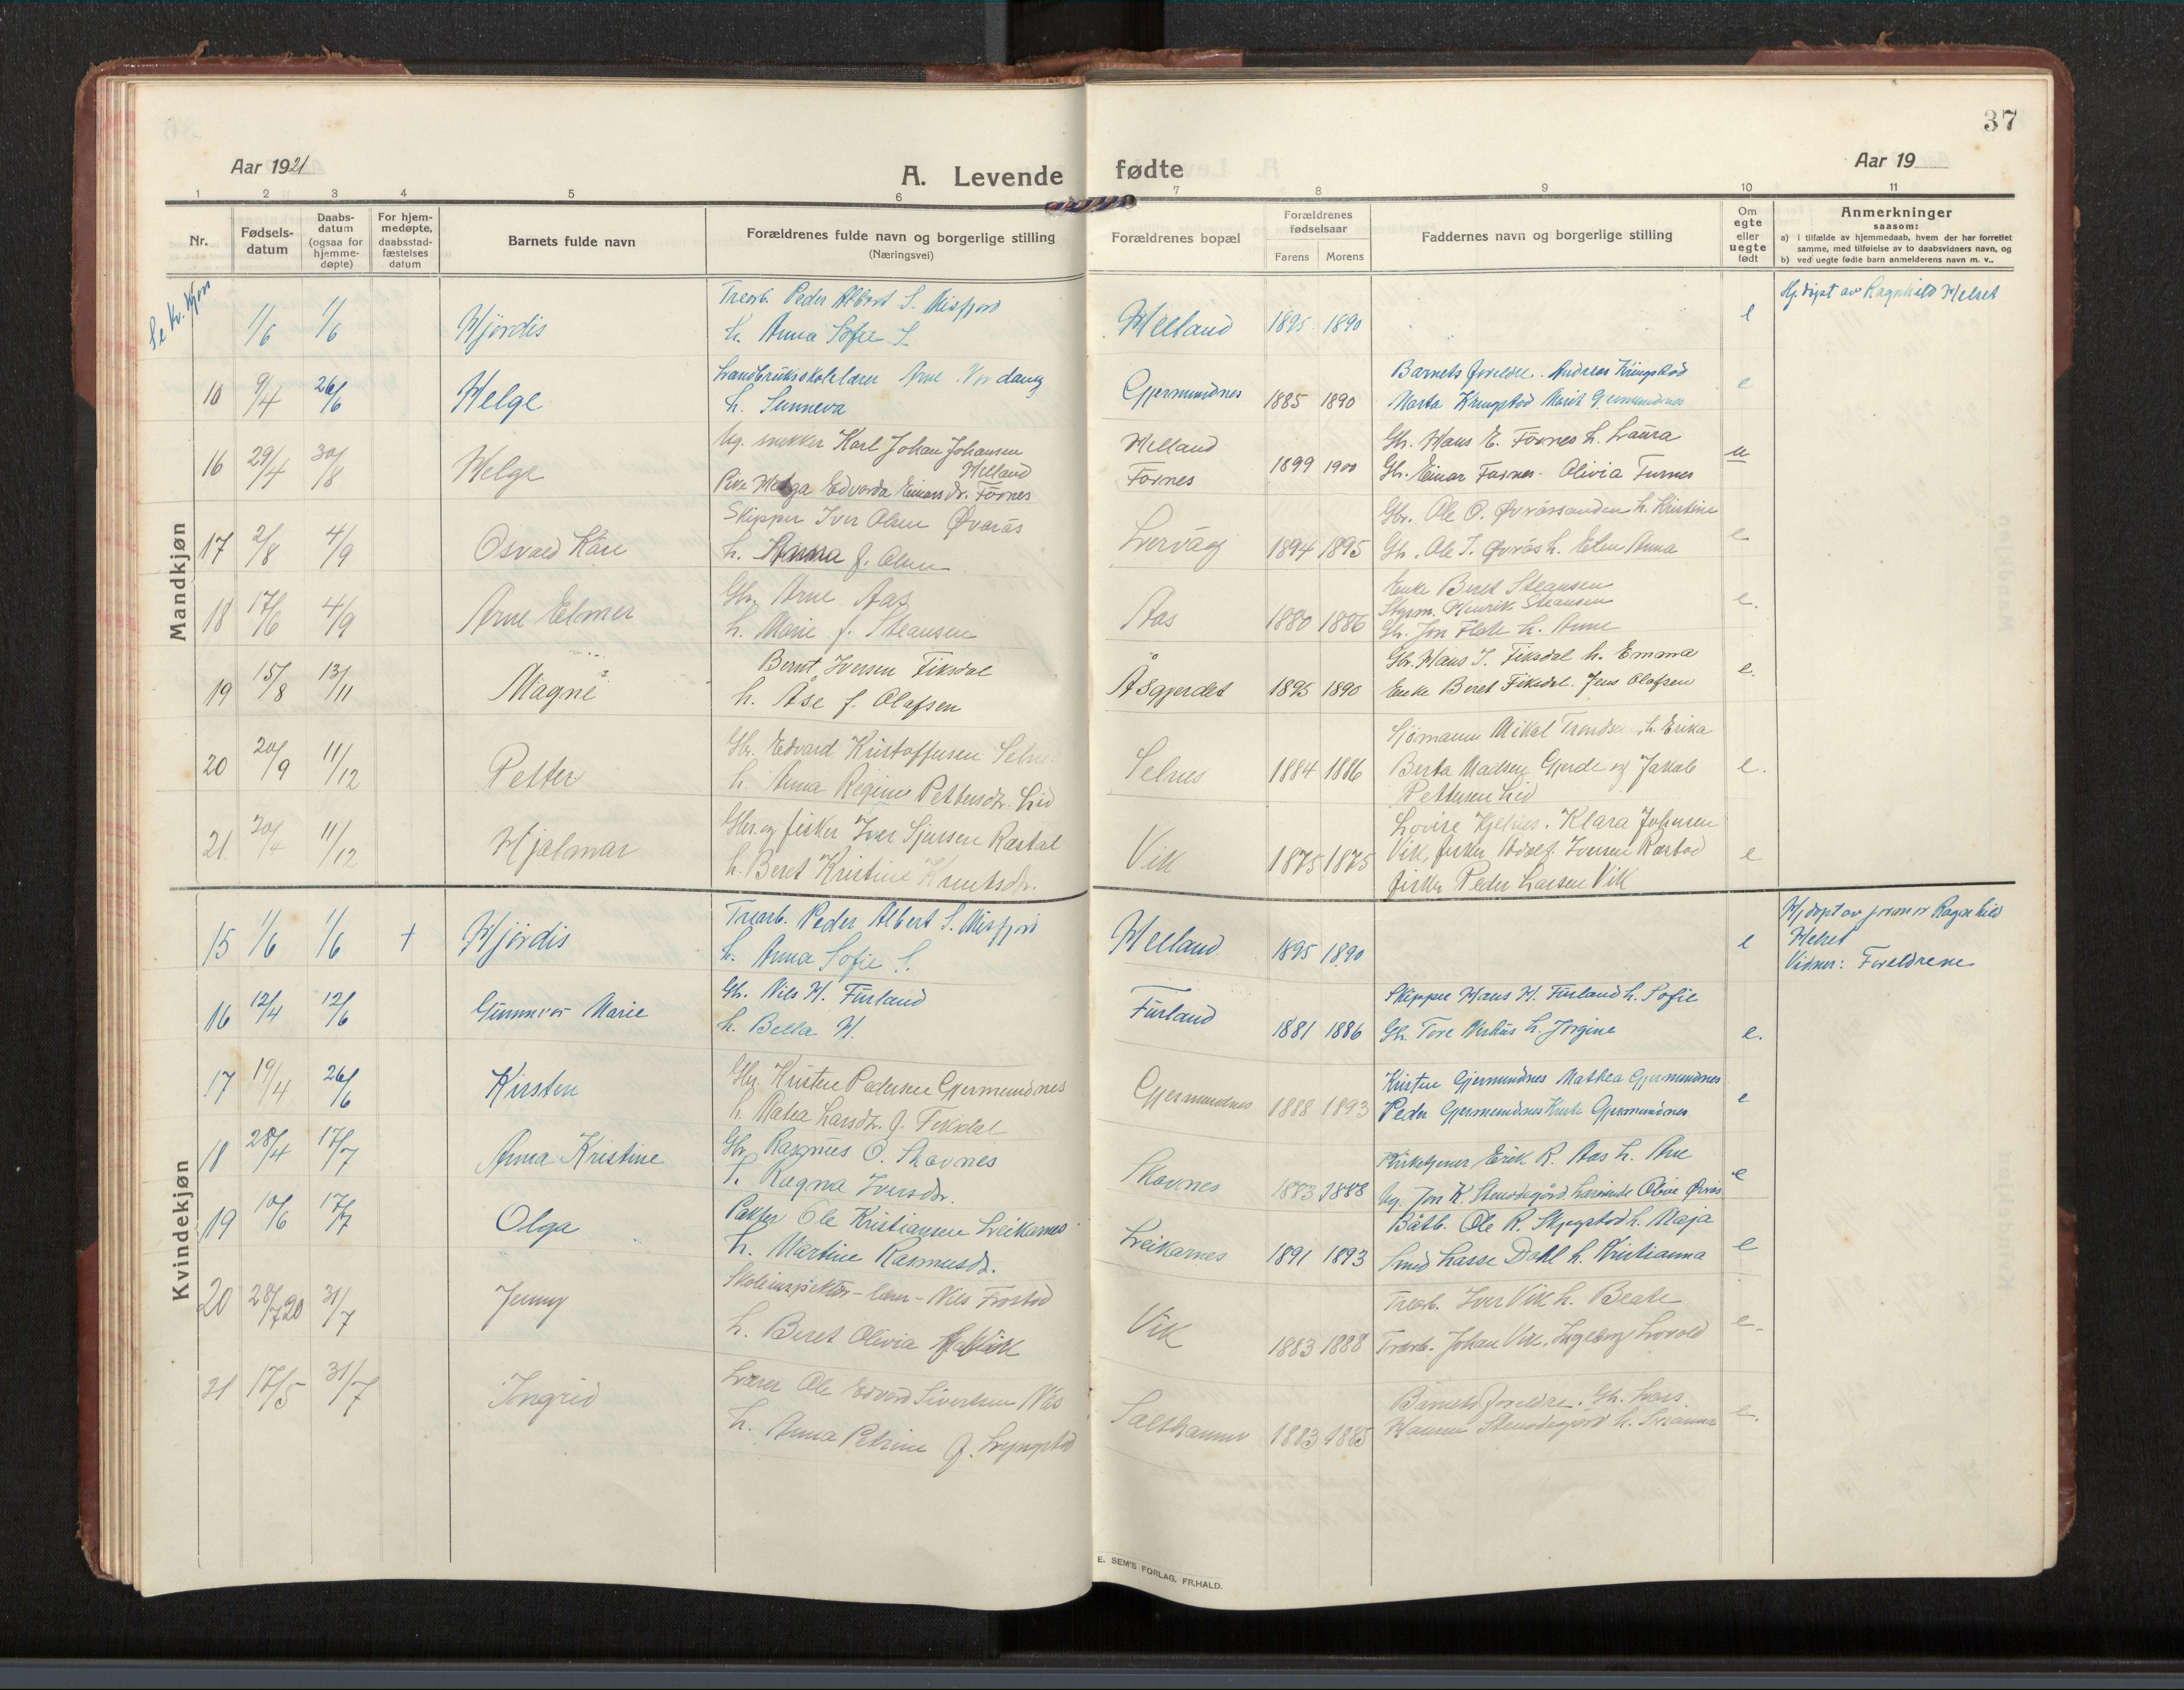 37
Aar 1921
A. Levende fødte
Aar 19
1 2 3 4 5 6 7 8 9 10 11
Nr.
Fødsels-
datum
Daabs-
datum
(ogsaa for
hjemme-
døpte)
For hjem-
medøpte,
daabsstad-
fæstelses
datum
Barnets fulde navn
Forældrenes fulde navn og borgerlige stilling
(Næringsvei)
Forældrenes bopæl
Forældrenes
fødselsaar
Farens Morens
Faddernes navn og borgerlige stilling
Om
egte
eller
uegte
født
Anmerkninger
saasom:
a) i tilfælde av hjemmedaab, hvem der har forrettet
samme, med tilføielse av to daabsvidners navn, og
b) ved uegte fødte barn anmelderens navn m. v..
Mandkjøn
Se kv. kjøn
1/6 1/6 Hjördis
Trearb. Peder Albert S. Misfjord
h. Anna Sofie S.
Helland 1895 1890 e
Hj. døpt av Ragnhild Helset
10 9/4 26/6 Helge
Landbruksskolelærer Arne
h. Sunneva
Gjermundnes 1885 1890
Barnets foreldre. Andreas Kringstad
Marta Kringstad Marit Gjermundnes
e
16 29/4 30/8 Helge
Ug. snekker Karl Johan Johansen
Helland
Pike Helga Edvarda Einars dr. Fornes
Helland
Fornes
1899 1900
Gb. Hans E. Fornes h. Laura
Gb. Einar Fornes - Olivia Furnes
u
17 2/8 4/9 Osvald Kåre
Skipper Iver Olsen Øvarås
h. Anna f. Olsen
Lervåg 1894 1895
Gbr. Ole O. Øvråssanden h. Kristine
Gb. Ole I. Øvrås h. Elen Anna
e
18 17/6 4/9 Arne Elmer
Gb. Arne Aas
h. Marie f. Steansen
Aas 1880 1886
Enke Beret Steansen
Styrm. Henrik Steansen
Gb. Jon Flate h. Anne
e.
19 15/8 13/11 Magne
Bernt Iversen Fiksdal
h. Åse f. Olafsen
Åsgjerdet 1895 1890
Gbr. Hans I. Fiksdal h. Emma
Enke Beret Fiksdal. Jens Olafsen
e.
20 20/9 11/12 Petter
Gbr. Edvard Kristoffersen Selnes
h. Anna Regine Pettersdr. Lid
Selnes 1884 1886
Sjømann Mikal h. Erika
Berta Madsen Gjerde og Jakob
Pettersen Lid
e.
21 11/12 Hjalmar
Gbr. og fisker Iver Sjursen Rastad
h. Beret Kristine Knutsdr.
Vik 1875 1875
Lovise Hjelnes. Klara Johnsen
Vik, fisker Adolf Iversen Rastad
fisker Peder Larsen Vik
e
Kvindekjøn
15 1/6 1/6 + Hjördis
Trearb. Peder Albert S. Misfjord
h. Anna Sofie S.
Helland 1895 1890 e
Hj døpt av jormor Ragnhild
Helset
Vidner: Foreldrene
16 12/4 12/6 Gunnvor Marie
Gb. Nils H. Furland
h. Bella H.
Furland 1881 1886
Skipper Hans H. Furland h. Sofie
Gb. Tore h. Jørgine
e.
17 19/4 26/6 Kirsten
Gbr. Kristen Pedersen Gjermundnes
h. Matea Larsdr. f. Fiksdal
Gjermundnes 1888 1893
Kristen Gjermundnes Mathea Gjermundnes
Peder Gjermundnes Gjermundnes
e
18 28/4 17/7 Anna Kristine
Gbr. Rasmus O. Skovnes
h. Ragna Iversdr.
Skovnes 1883 1888
Kirketjener Erik R. Aas h. Ane
Ug. Jon K. Stensdegård Olive Øvrås
e
19 10/6 17/7 Olga
Pakter Ole Kristiansen Leikarnes
h. Martine Rasmusdr.
Leikarnes 1891 1893
Båtb. Ole R. Skjegstad h. Maja
Smed Lasse Dahl h. Kristianna
e
20 28/7 20 31/7 Jenny
Skoleinspektør - lærer - Nils Frostad
h. Beret Olivia
Vik 1883 1888
Trearb. Iver Vik h. Beate
Trearb. Johan Vik. Ingeborg Lovold
e
21 17/5 31/7 Ingrid
Lærer Ole Edvard Sivertsen Nås
h. Anna Petrine f. Lyngstad
Salthammer 1883 1885
Barnets foreldre. Gb. Lars
Hansen Stensdegård h. Susanna
e.
E. SEM'S FORLAG, FR.HALD.